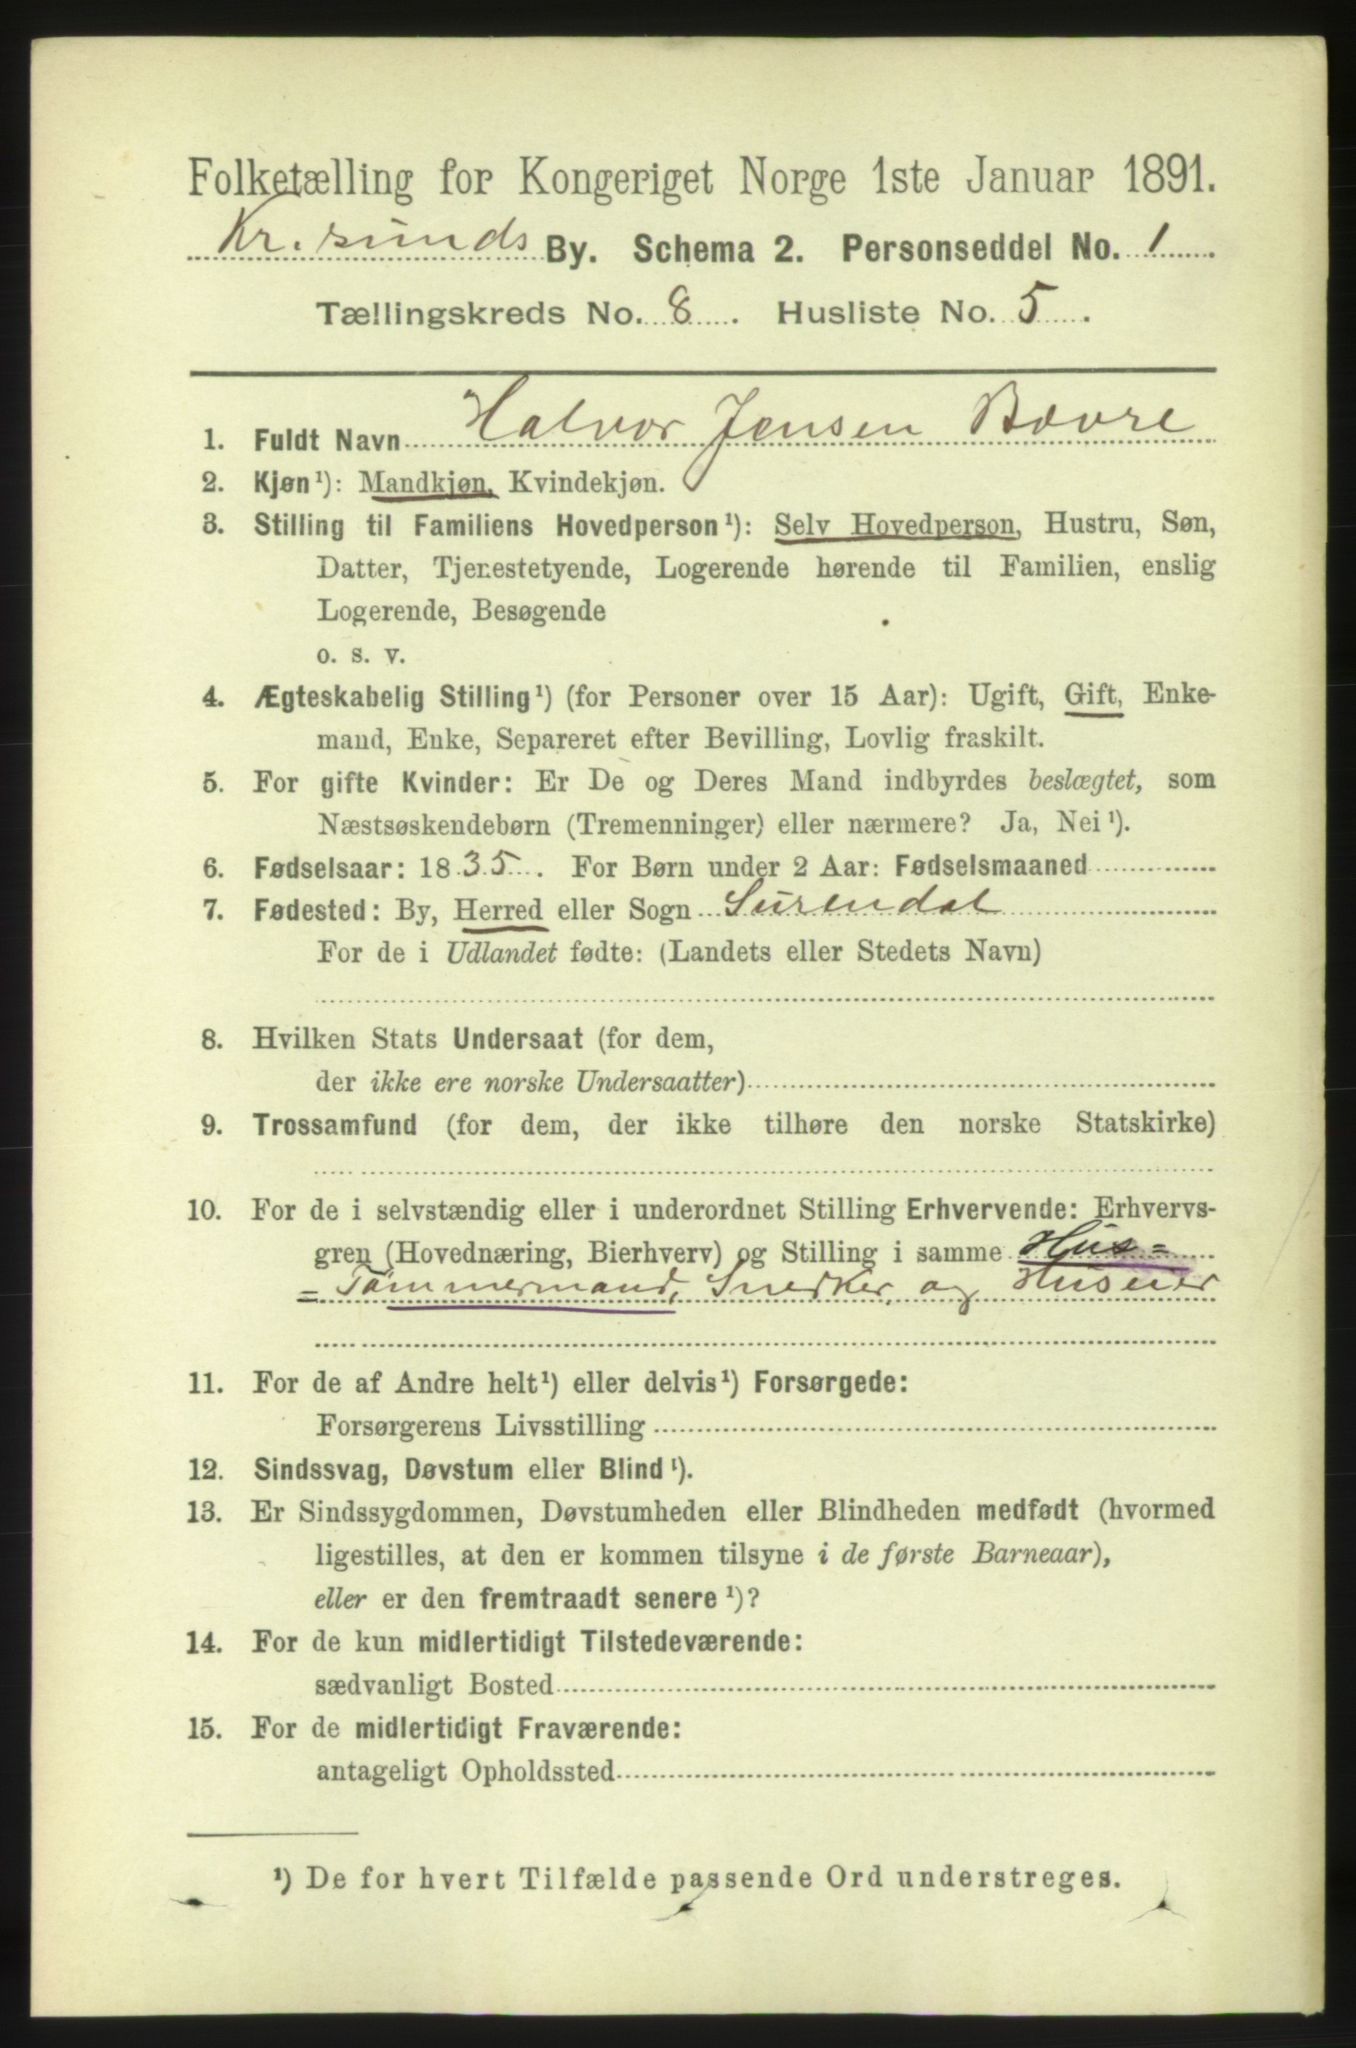 Folketælling for Kongeriget Norge 1ste Januar 1891.
Kr.sunds By. Schema 2. Personseddel No. 1.
Tællingskreds No. 8. Husliste No. 5.
1. Fuldt Navn Halvor Jensen Bævre
2. Kjøn¹): Mandkjøn, Kvindekjøn.
3. Stilling til Familiens Hovedperson¹): Selv Hovedperson, Hustru, Søn,
Datter, Tjenestetyende, Logerende hørende til Familien, enslig
Logerende, Besøgende
o. s. v.
4. Ægteskabelig Stilling¹) (for Personer over 15 Aar): Ugift, Gift, Enke-
mand, Enke, Separeret efter Bevilling, Lovlig fraskilt.
5. For gifte Kvinder: Er De og Deres Mand indbyrdes beslægtet, som
Næstsøskendebørn (Tremenninger) eller nærmere? Ja, Nei¹).
6. Fødselsaar: 1835. For Børn under 2 Aar: Fødselsmaaned
7. Fødested: By, Herred eller Sogn Surendal
For de i Udlandet fødte: (Landets eller Stedets Navn)
8. Hvilken Stats Undersaat (for dem,
der ikke ere norske Undersaatter)
9. Trossamfund (for dem, der ikke tilhøre den norske Statskirke)
10. For de i selvstændig eller i underordnet Stilling Erhvervende: Erhvervs-
gren (Hovednæring, Bierhverv) og Stilling i samme Hus=
=Tømmermand, Snedker, og Huseier
11. For de af Andre helt¹) eller delvis¹) Forsørgede:
Forsørgerens Livsstilling
12. Sindssvag, Døvstum eller Blind¹).
13. Er Sindssygdommen, Døvstumheden eller Blindheden medfødt (hvormed
ligestilles, at den er kommen tilsyne i de første Barneaar),
eller er den fremtraadt senere¹)?
14. For de kun midlertidigt Tilstedeværende:
sædvanligt Bosted
15. For de midlertidigt Fraværende:
antageligt Opholdssted
¹) De for hvert Tilfælde passende Ord understreges.